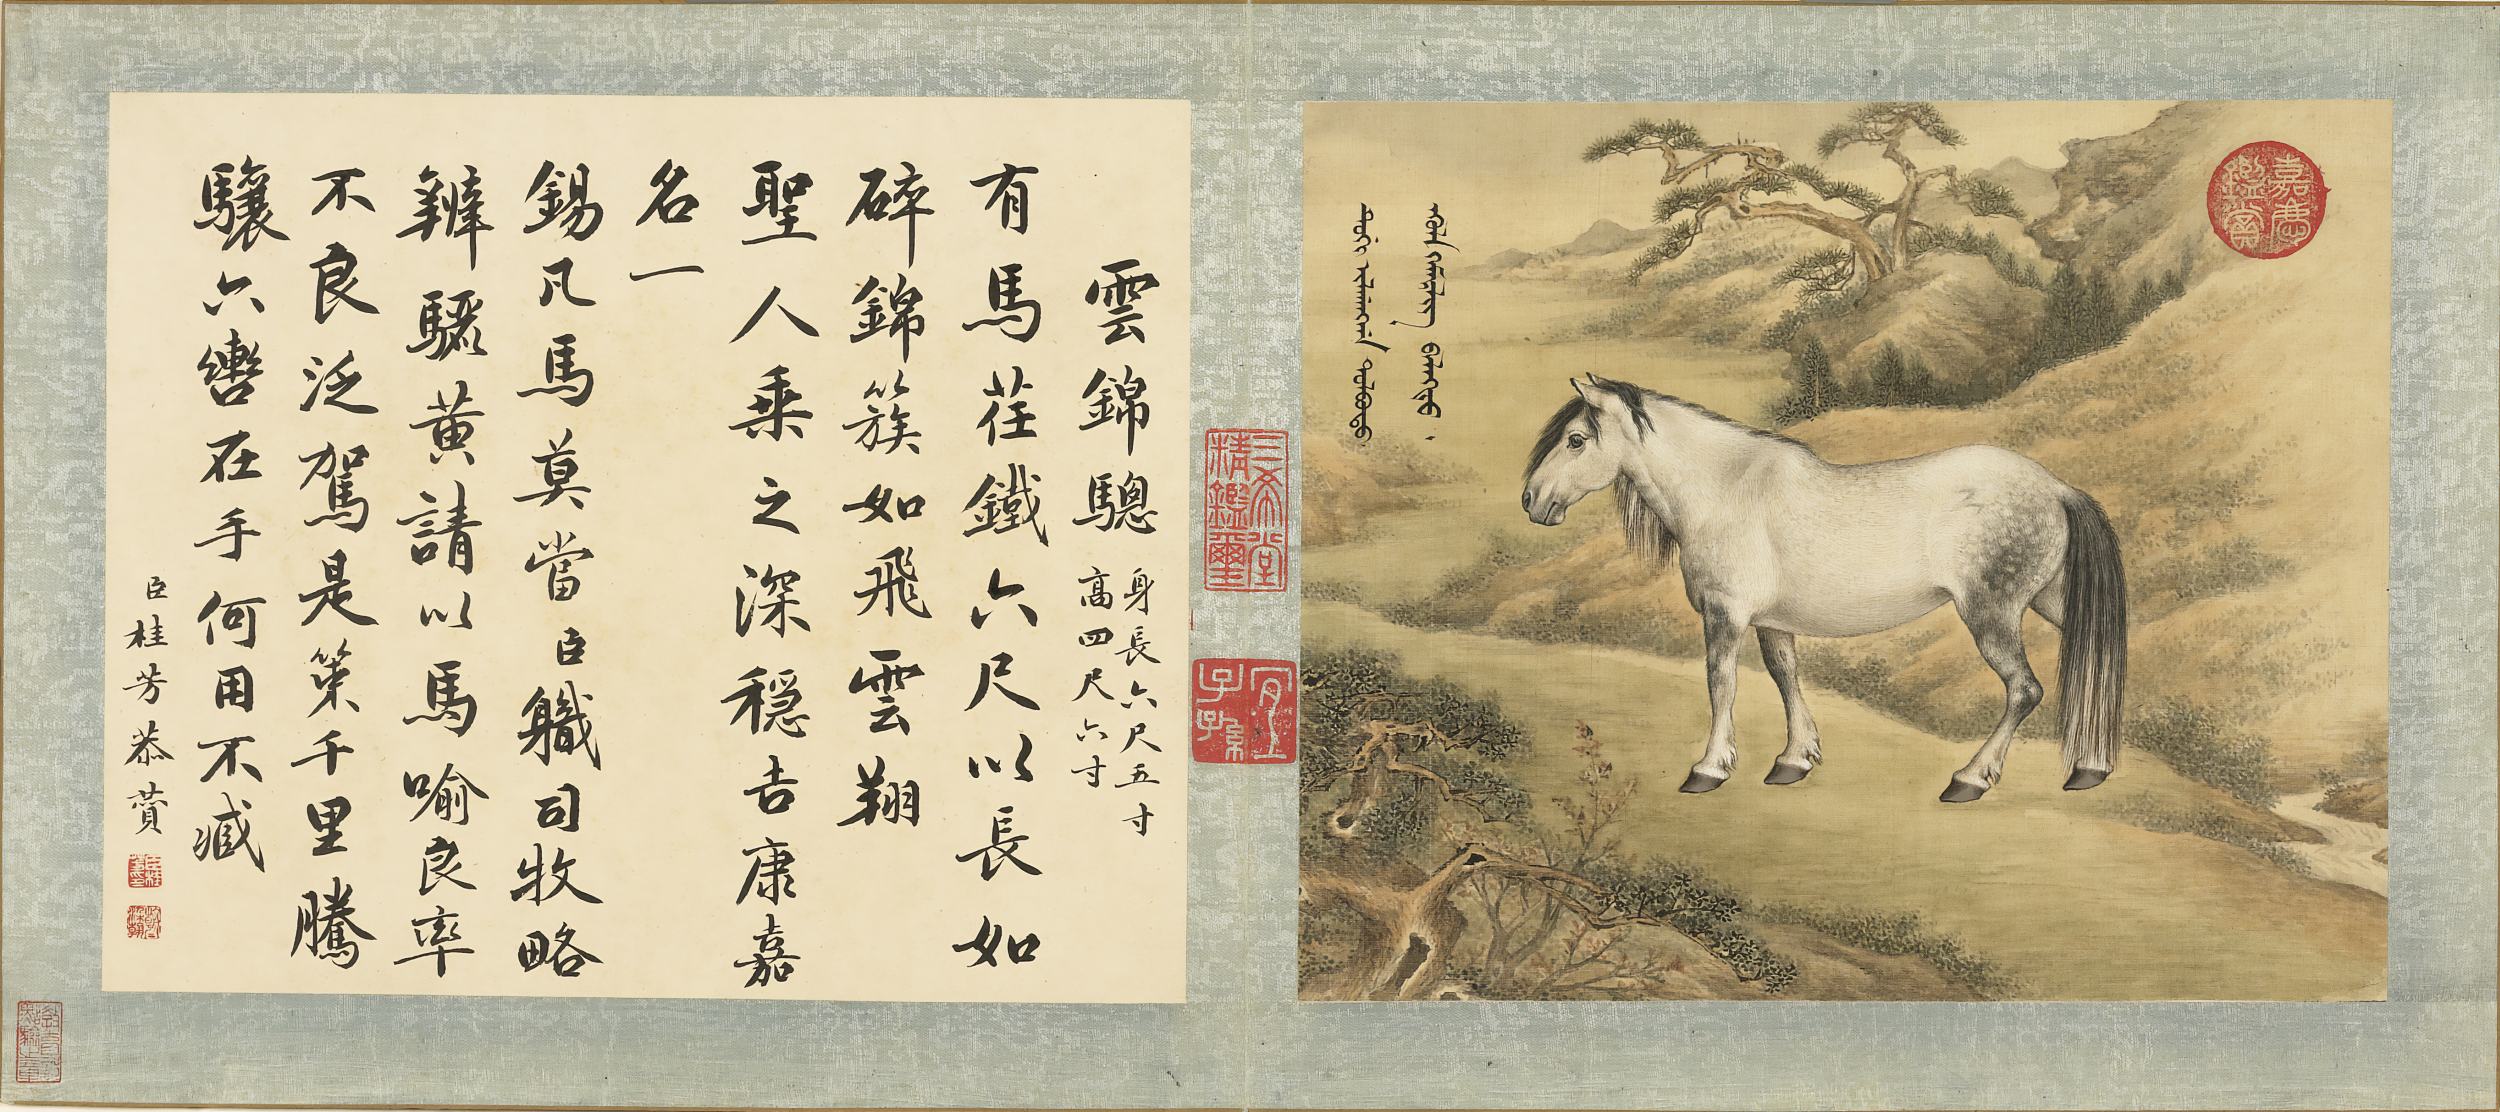 嘉慶鑑賞
三希堂精鑑璽
宜子孫
雲錦驄
身長六尺五寸
高四尺六寸
有馬茌鐵六尺以長如
碎錦簇如飛雲翔
聖人乘之深穩吉康嘉
名一
錫凡馬莫當臣職司牧略
辨驪黃請以馬喻良率
不良泛駕是策千里騰
驤六轡在手何用不臧
臣桂芳恭贊